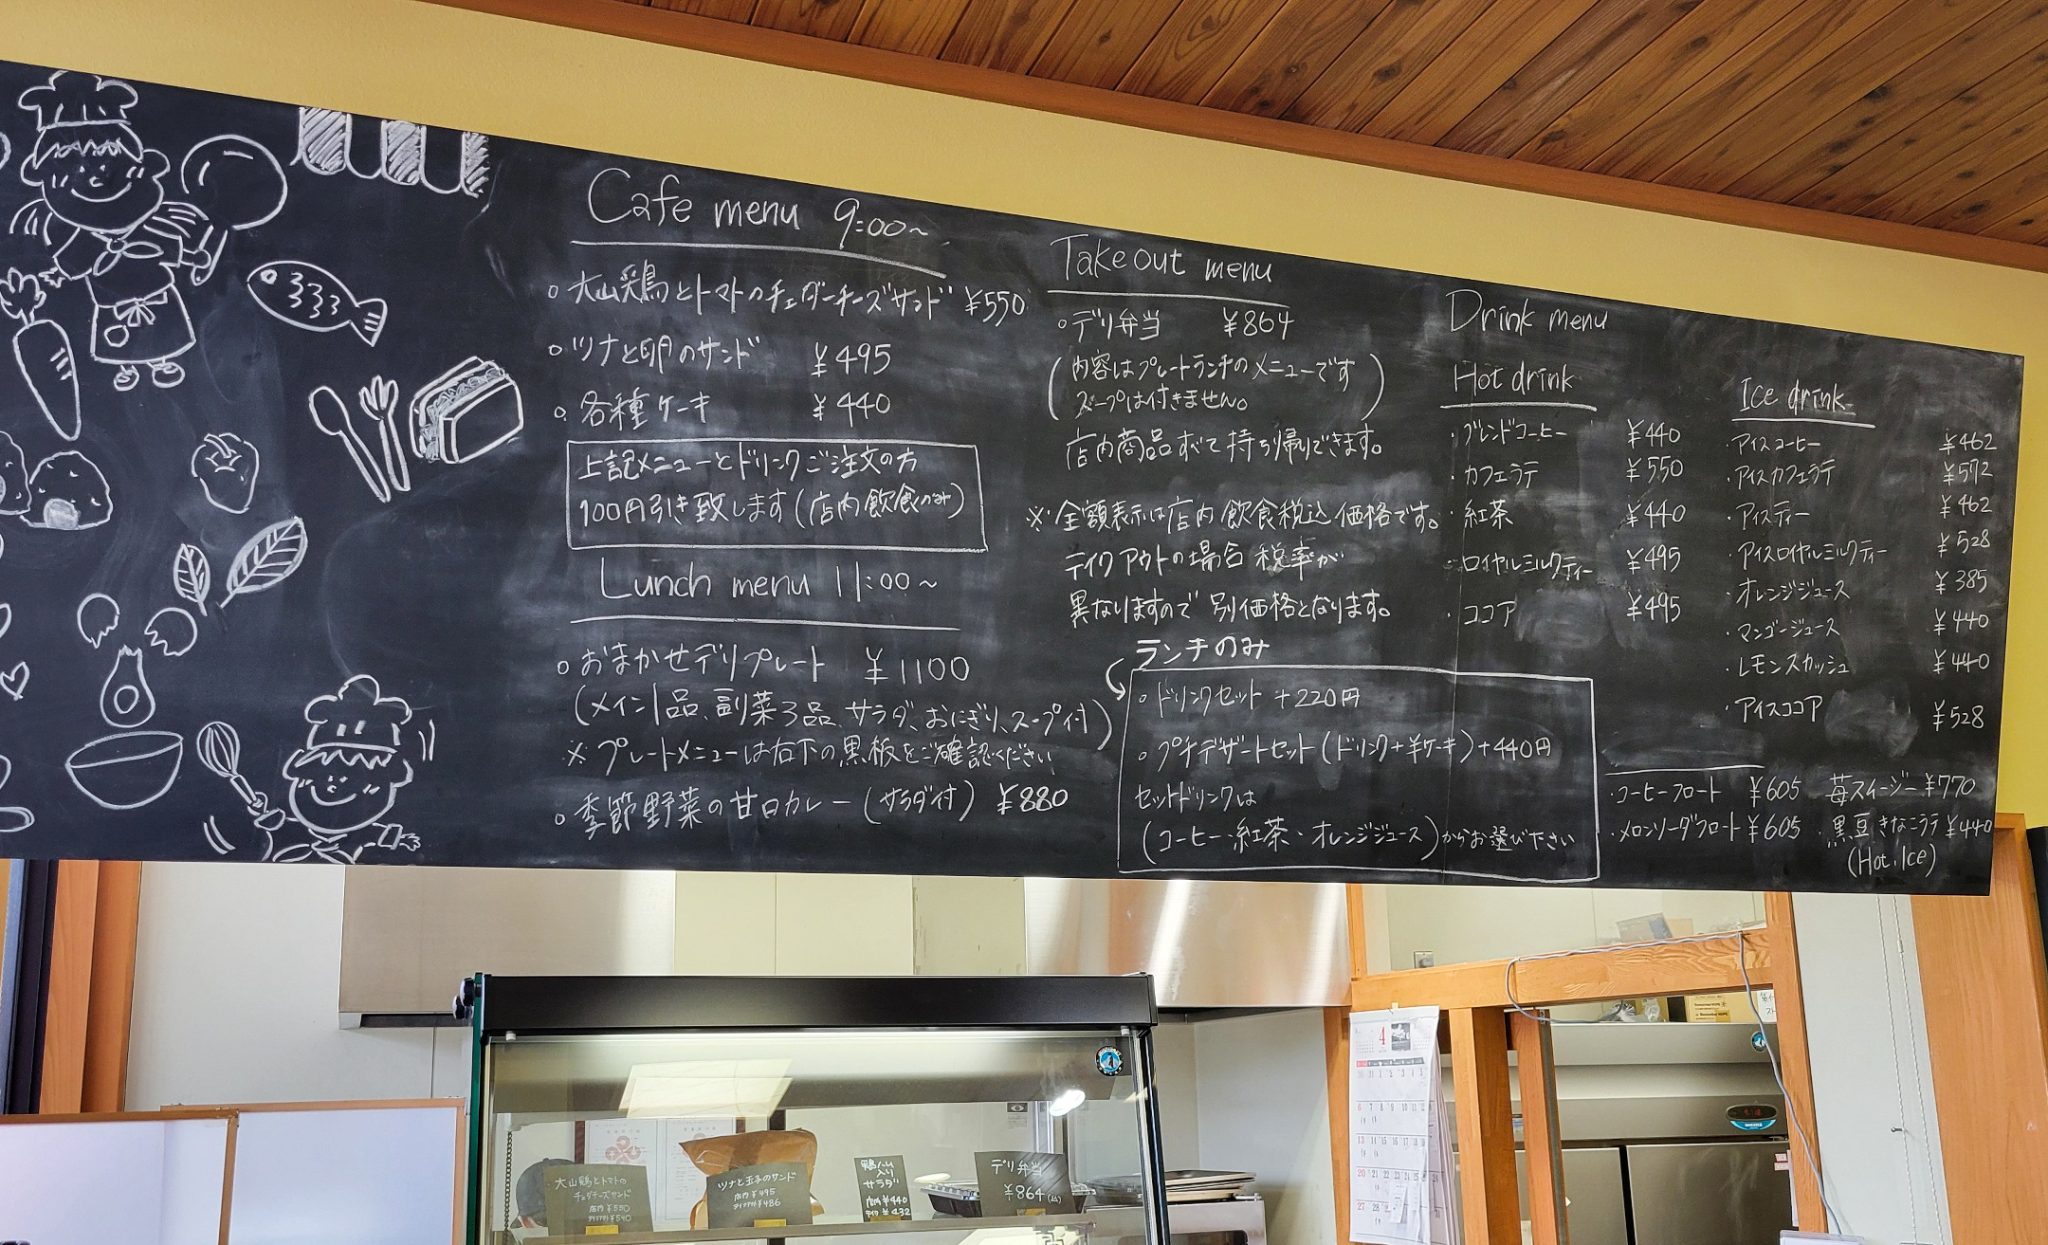 Cafe menu 9:00~
。大山鶏とトマトのチェダーチーズサンド ¥550
。ツナと卵のサンド ¥495
。各種ケーキ ¥440
上記メニューとドリンクご注文の方
100円引き致します(店内飲食のみ)
Lunch menu 11:00~
。おまかせデリプレート ¥1100
(メイン1品、副菜3品、サラダ、おにぎり、スープ付)
※プレートメニューは右下の黒板をご確認ください
。季節野菜の甘口カレー(サラダ付) ¥880
Takeout menu
。デリ弁当 ¥864
(内容はプレートランチのメニューです
スープは付きません。)
店内商品すべて持ち帰りできます。
※金額表示は店内飲食税込価格です。
テイクアウトの場合税率が
異なりますので別価格となります。
ランチのみ
。ドリンクセット +220円
。プチデザートセット(ドリンク+半ケーキ)+440円
セットドリンクは
(コーヒー・紅茶・オレンジジュース)からお選びください
Drink menu
Hot drink
・ブレンドコーヒー ¥440
・カフェラテ ¥550
・紅茶 ¥440
・ロイヤルミルクティー ¥495
・ココア ¥495
Ice drink
・アイスコーヒー ¥462
・アイスカフェラテ ¥572
・アイスティー ¥462
・アイスロイヤルミルクティー ¥528
・オレンジジュース ¥385
・マンゴージュース ¥440
・レモンスカッシュ ¥440
・アイスココア ¥528
・コーヒーフロート ¥605
・メロンソーダフロート ¥605
苺スムージー ¥770
・黒豆きなこラテ ¥440
(Hot, Ice)
大山鶏とトマトの
チェダーチーズサンド
店内 ¥550
テイクアウト ¥540
ツナと玉子のサンド
店内 ¥495
テイクアウト ¥486
鴨ハム
入り
サラダ
店内 ¥440
テイク ¥432
デリ弁当
¥864
4